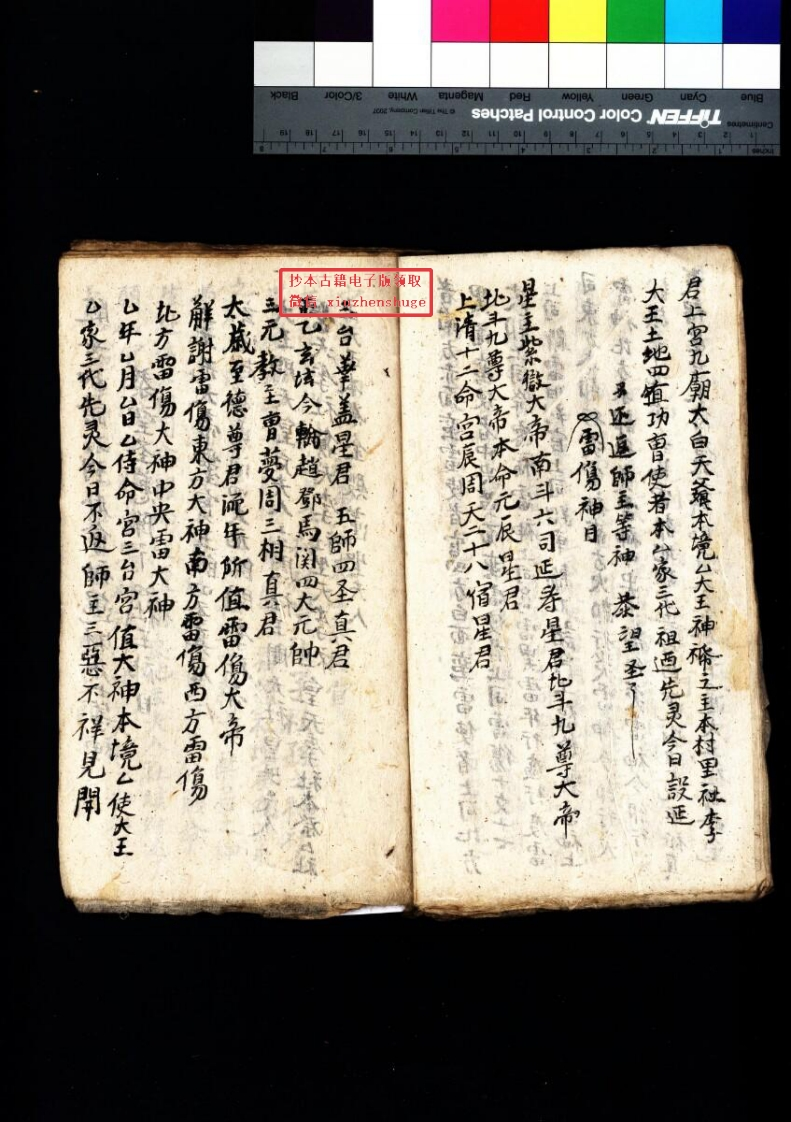 Blue
Cyan
Green
Yellow
Red
Magenta
White
3/Color
Black
TIFFEN Color Control Patches
© The Tiffen Company, 2007
Centimetres
Inches
抄本古籍电子版领取
微信 xinzhenshuge
君上宮九廟太白天 本境厶大王神 之主本村里社李
大王土地四值功曹使者本厶家三代祖 先灵今日設延
延返師主等神 恭望圣
雷傷神目
星主紫微大帝南斗六司延寿星君北斗九尊大帝
北斗九尊大帝本命元辰星君
上清十二命宮 周天二十八宿星君
台華盖星君 五師四圣真君
乙玄坛今 趙鄧馬関四大元帥
三元教主曹夢周三相真君
太歲至德尊君流年所值雷傷大帝
解謝雷傷東方大神南方雷傷西方雷傷
北方雷傷大神中央雷大神
厶年厶月厶日厶侍命宮三台宮值大神本境厶使大王
厶家三代先灵今日不返師主三惡不祥見聞